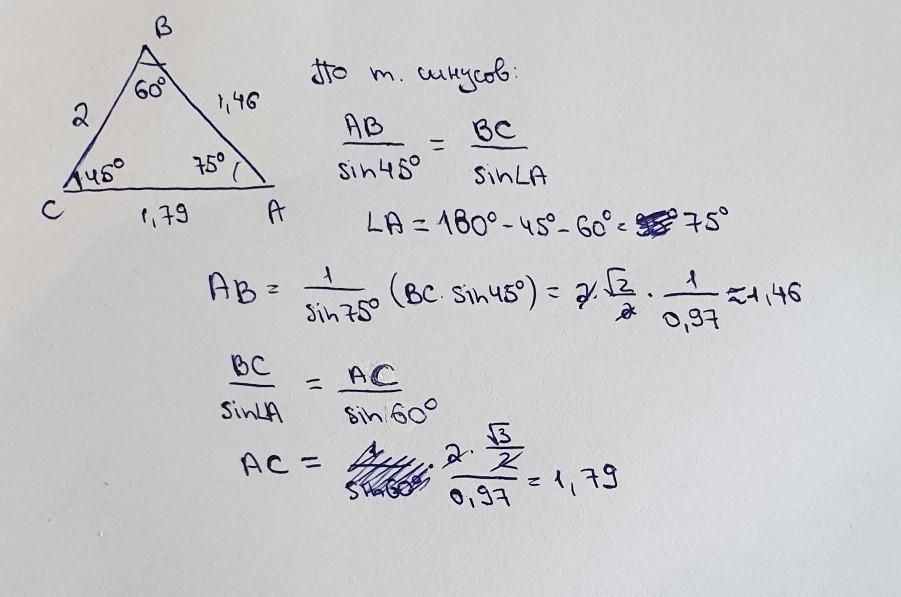 B
60°
2
1,46
45°
75°
C
1,79
A
По т. синусов:
AB/sin45° = BC/sin∠A
∠A = 180° - 45° - 60° = 75°
AB = 1/sin75° (BC · sin45°) = 2 · √2/2 · 1/0,97 ≈ 1,46
BC/sin∠A = AC/sin60°
AC = (2 · √3/2)/0,97 = 1,79